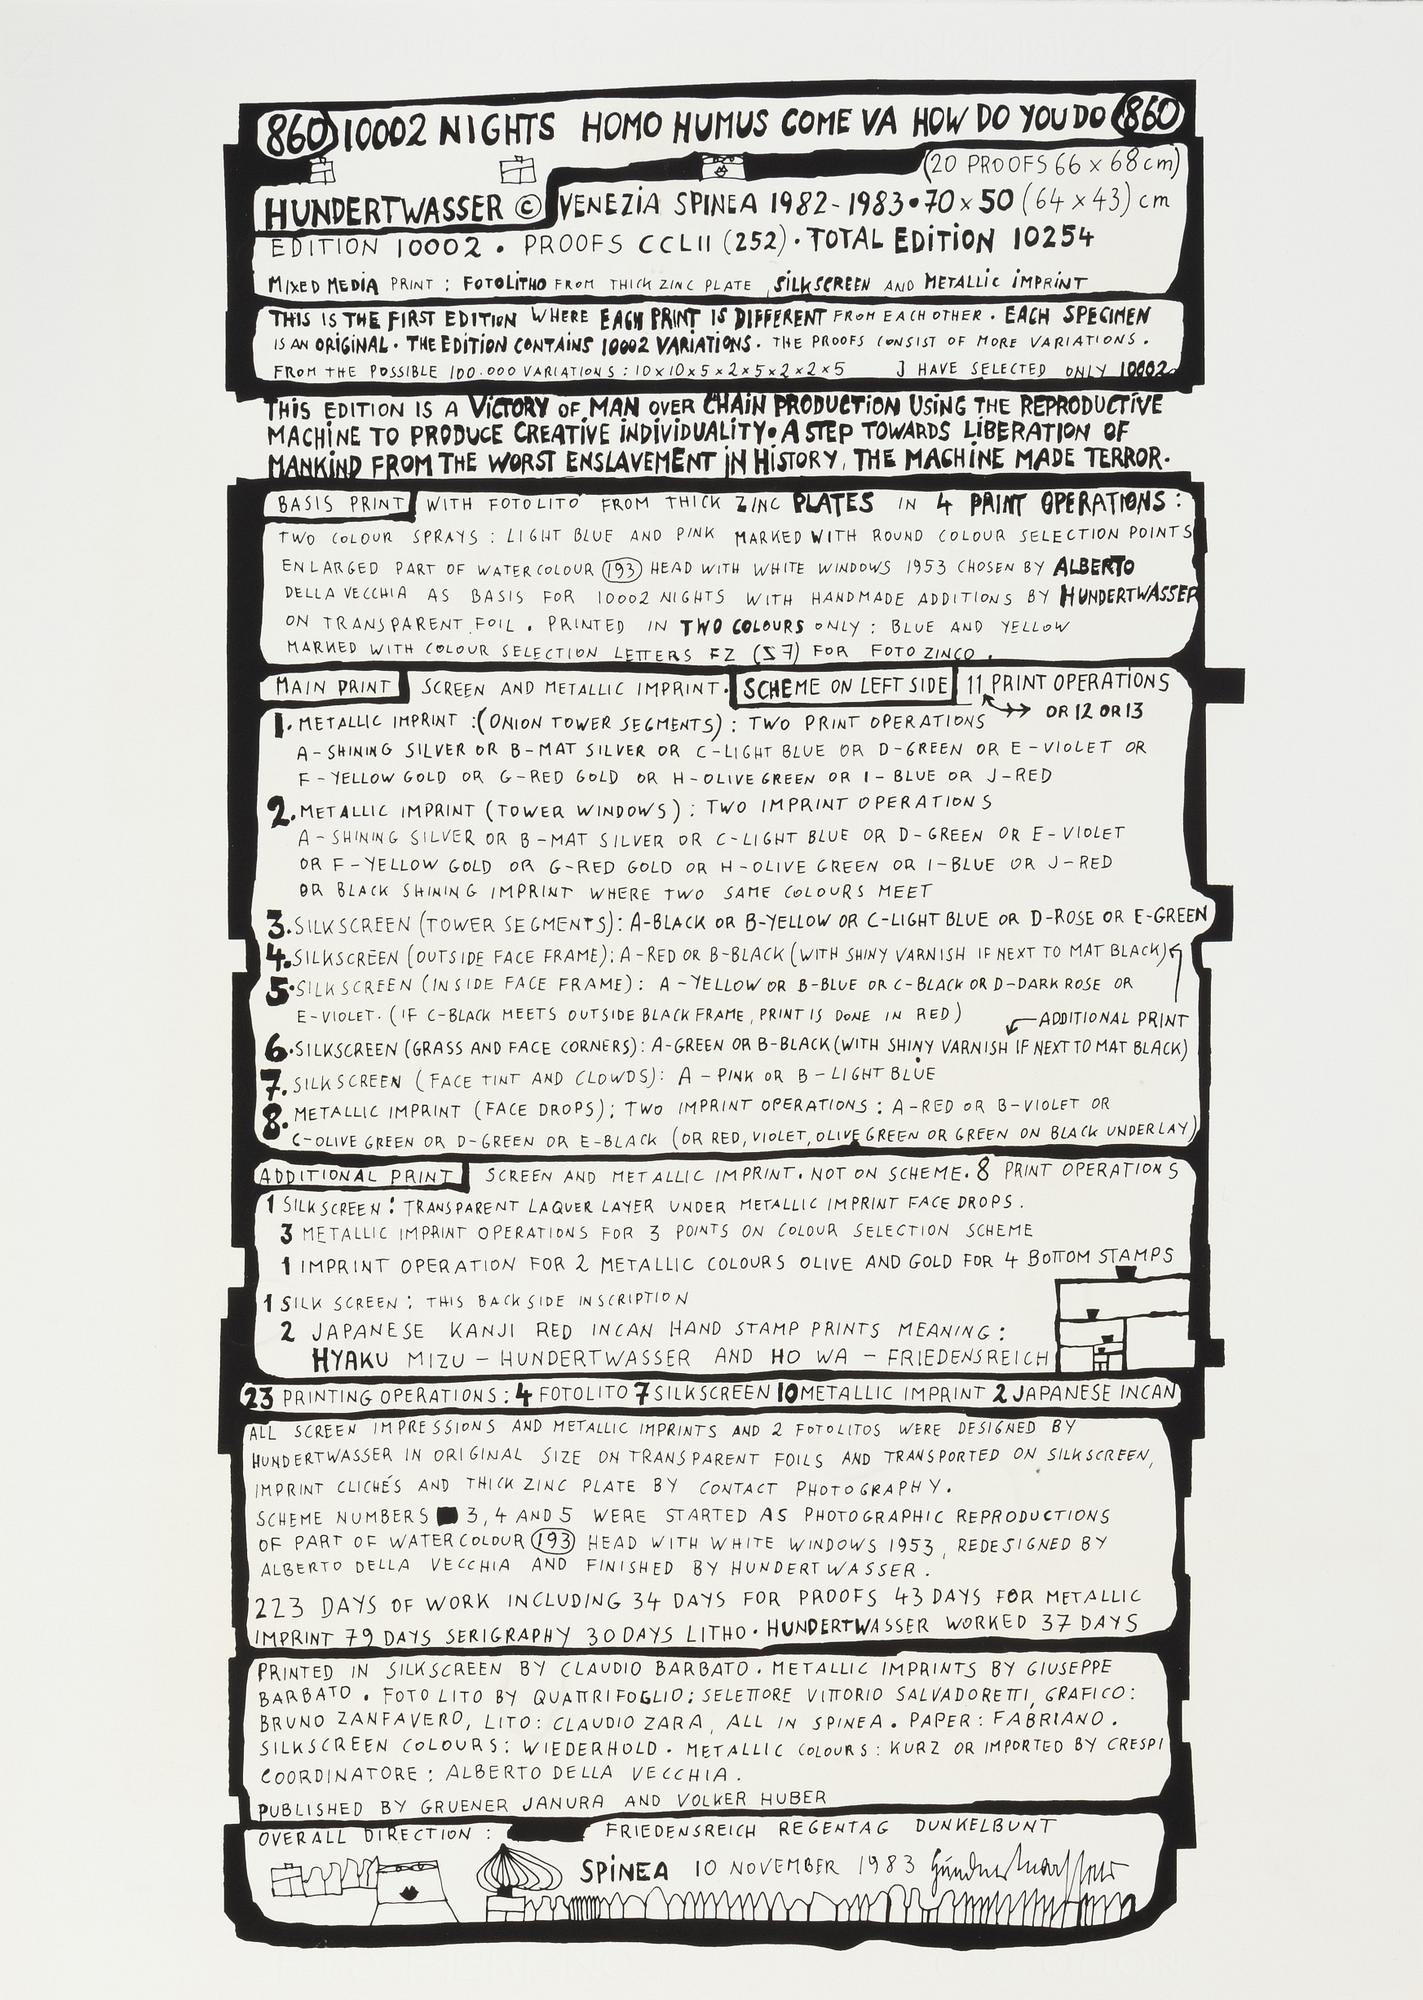 860 10002 NIGHTS HOMO HUMUS COME VA HOW DO YOU DO 860
(20 PROOFS 66 x 68 cm)
HUNDERTWASSER © VENEZIA SPINEA 1982-1983•70 x 50 (64 x 43) cm
EDITION 10002 • PROOFS CCLII (252) • TOTAL EDITION 10254
MIXED MEDIA PRINT : FOTOLITHO FROM THICK ZINC PLATE, SILKSCREEN AND METALLIC IMPRINT
THIS IS THE FIRST EDITION WHERE EACH PRINT IS DIFFERENT FROM EACH OTHER • EACH SPECIMEN
IS AN ORIGINAL • THE EDITION CONTAINS 10002 VARIATIONS • THE PROOFS CONSIST OF MORE VARIATIONS.
FROM THE POSSIBLE 100.000 VARIATIONS : 10x10x5x2x5x2x2x5 J HAVE SELECTED ONLY 10002.
THIS EDITION IS A VICTORY OF MAN OVER CHAIN PRODUCTION USING THE REPRODUCTIVE
MACHINE TO PRODUCE CREATIVE INDIVIDUALITY. A STEP TOWARDS LIBERATION OF
MANKIND FROM THE WORST ENSLAVEMENT IN HISTORY, THE MACHINE MADE TERROR.
BASIS PRINT WITH FOTOLITO FROM THICK ZINC PLATES IN 4 PRINT OPERATIONS :
TWO COLOUR SPRAYS : LIGHT BLUE AND PINK MARKED WITH ROUND COLOUR SELECTION POINTS
ENLARGED PART OF WATERCOLOUR (193) HEAD WITH WHITE WINDOWS 1953 CHOSEN BY ALBERTO
DELLA VECCHIA AS BASIS FOR 10002 NIGHTS WITH HANDMADE ADDITIONS BY HUNDERTWASSER
ON TRANSPARENT FOIL. PRINTED IN TWO COLOURS ONLY : BLUE AND YELLOW
MARKED WITH COLOUR SELECTION LETTERS FZ (S7) FOR FOTO ZINCO.
MAIN PRINT SCREEN AND METALLIC IMPRINT. SCHEME ON LEFT SIDE 11 PRINT OPERATIONS
OR 12 OR 13
1. METALLIC IMPRINT : (ONION TOWER SEGMENTS) : TWO PRINT OPERATIONS
A-SHINING SILVER OR B-MAT SILVER OR C-LIGHT BLUE OR D-GREEN OR E-VIOLET OR
F-YELLOW GOLD OR G-RED GOLD OR H-OLIVE GREEN OR I-BLUE OR J-RED
2. METALLIC IMPRINT (TOWER WINDOWS) : TWO IMPRINT OPERATIONS
A-SHINING SILVER OR B-MAT SILVER OR C-LIGHT BLUE OR D-GREEN OR E-VIOLET
OR F-YELLOW GOLD OR G-RED GOLD OR H-OLIVE GREEN OR I-BLUE OR J-RED
OR BLACK SHINING IMPRINT WHERE TWO SAME COLOURS MEET
3. SILKSCREEN (TOWER SEGMENTS) : A-BLACK OR B-YELLOW OR C-LIGHT BLUE OR D-ROSE OR E-GREEN
4. SILKSCREEN (OUTSIDE FACE FRAME) : A-RED OR B-BLACK (WITH SHINY VARNISH IF NEXT TO MAT BLACK)
5. SILKSCREEN (INSIDE FACE FRAME) : A-YELLOW OR B-BLUE OR C-BLACK OR D-DARK ROSE OR
E-VIOLET. (IF C-BLACK MEETS OUTSIDE BLACK FRAME, PRINT IS DONE IN RED)
ADDITIONAL PRINT
6. SILKSCREEN (GRASS AND FACE CORNERS) : A-GREEN OR B-BLACK (WITH SHINY VARNISH IF NEXT TO MAT BLACK)
7. SILKSCREEN (FACE TINT AND CLOWDS) : A-PINK OR B-LIGHT BLUE
8. METALLIC IMPRINT (FACE DROPS) ; TWO IMPRINT OPERATIONS : A-RED OR B-VIOLET OR
C-OLIVE GREEN OR D-GREEN OR E-BLACK (OR RED, VIOLET, OLIVE GREEN OR GREEN ON BLACK UNDERLAY)
ADDITIONAL PRINT SCREEN AND METALLIC IMPRINT. NOT ON SCHEME. 8 PRINT OPERATIONS
1 SILKSCREEN : TRANSPARENT LAQUER LAYER UNDER METALLIC IMPRINT FACE DROPS.
3 METALLIC IMPRINT OPERATIONS FOR 3 POINTS ON COLOUR SELECTION SCHEME
1 IMPRINT OPERATION FOR 2 METALLIC COLOURS OLIVE AND GOLD FOR 4 BOTTOM STAMPS
1 SILK SCREEN : THIS BACKSIDE INSCRIPTION
2 JAPANESE KANJI RED INCAN HAND STAMP PRINTS MEANING :
HYAKU MIZU - HUNDERTWASSER AND HO WA - FRIEDENSREICH
23 PRINTING OPERATIONS : 4 FOTOLITO 7 SILKSCREEN 10 METALLIC IMPRINT 2 JAPANESE INCAN
ALL SCREEN IMPRESSIONS AND METALLIC IMPRINTS AND 2 FOTOLITOS WERE DESIGNED BY
HUNDERTWASSER IN ORIGINAL SIZE ON TRANSPARENT FOILS AND TRANSPORTED ON SILKSCREEN,
IMPRINT CLICHÉS AND THICK ZINC PLATE BY CONTACT PHOTOGRAPHY.
SCHEME NUMBERS 3, 4 AND 5 WERE STARTED AS PHOTOGRAPHIC REPRODUCTIONS
OF PART OF WATERCOLOUR (193) HEAD WITH WHITE WINDOWS 1953, REDESIGNED BY
ALBERTO DELLA VECCHIA AND FINISHED BY HUNDERTWASSER.
223 DAYS OF WORK INCLUDING 34 DAYS FOR PROOFS 43 DAYS FOR METALLIC
IMPRINT 79 DAYS SERIGRAPHY 30 DAYS LITHO • HUNDERTWASSER WORKED 37 DAYS
PRINTED IN SILKSCREEN BY CLAUDIO BARBATO. METALLIC IMPRINTS BY GIUSEPPE
BARBATO. FOTOLITO BY QUATTRIFOGLIO ; SELETTORE VITTORIO SALVADORETTI, GRAFICO :
BRUNO ZANFAVERO, LITO : CLAUDIO ZARA, ALL IN SPINEA. PAPER : FABRIANO.
SILKSCREEN COLOURS : WIEDERHOLD. METALLIC COLOURS : KURZ OR IMPORTED BY CRESPI
COORDINATORE : ALBERTO DELLA VECCHIA.
PUBLISHED BY GRUENER JANURA AND VOLKER HUBER
OVERALL DIRECTION : FRIEDENSREICH REGENTAG DUNKELBUNT
SPINEA 10 NOVEMBER 1983 Hundertwasser